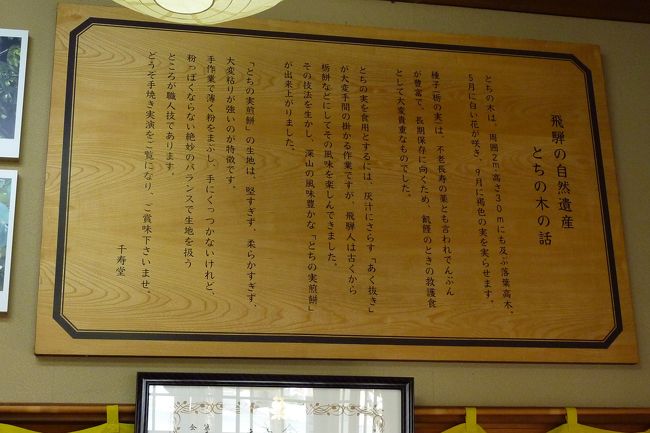 飛騨の自然遺産
とちの木の話
とちの木は、周囲2m、高さ30mにも及ぶ落葉高木。
5月に白い花が咲き、9月に褐色の実を実らせます。
種子「栃の実」は、不老長寿の薬とも言われでんぷん
が豊富で、長期保存に向くため、飢饉のときの救護食
として大変貴重なものでした。
とちの実を食用とするには、灰汁にさらす「あく抜き」
が大変手間の掛かる作業ですが、飛騨人は古くから
栃餅などにしてその風味を楽しんできました。
その技法を生かし、深山の風味豊かな「とちの実煎餅」
が出来上がりました。
「とちの実煎餅」の生地は、堅すぎず、柔らかすぎず、
大変粘りが強いのが特徴です。
手作業で薄く粉をまぶし、手にくっつかないけれど、
粉っぽくならない絶妙のバランスで生地を扱う
ところが職人技であります。
どうぞ手焼き実演をご覧になり、ご賞味下さいませ。
千寿堂